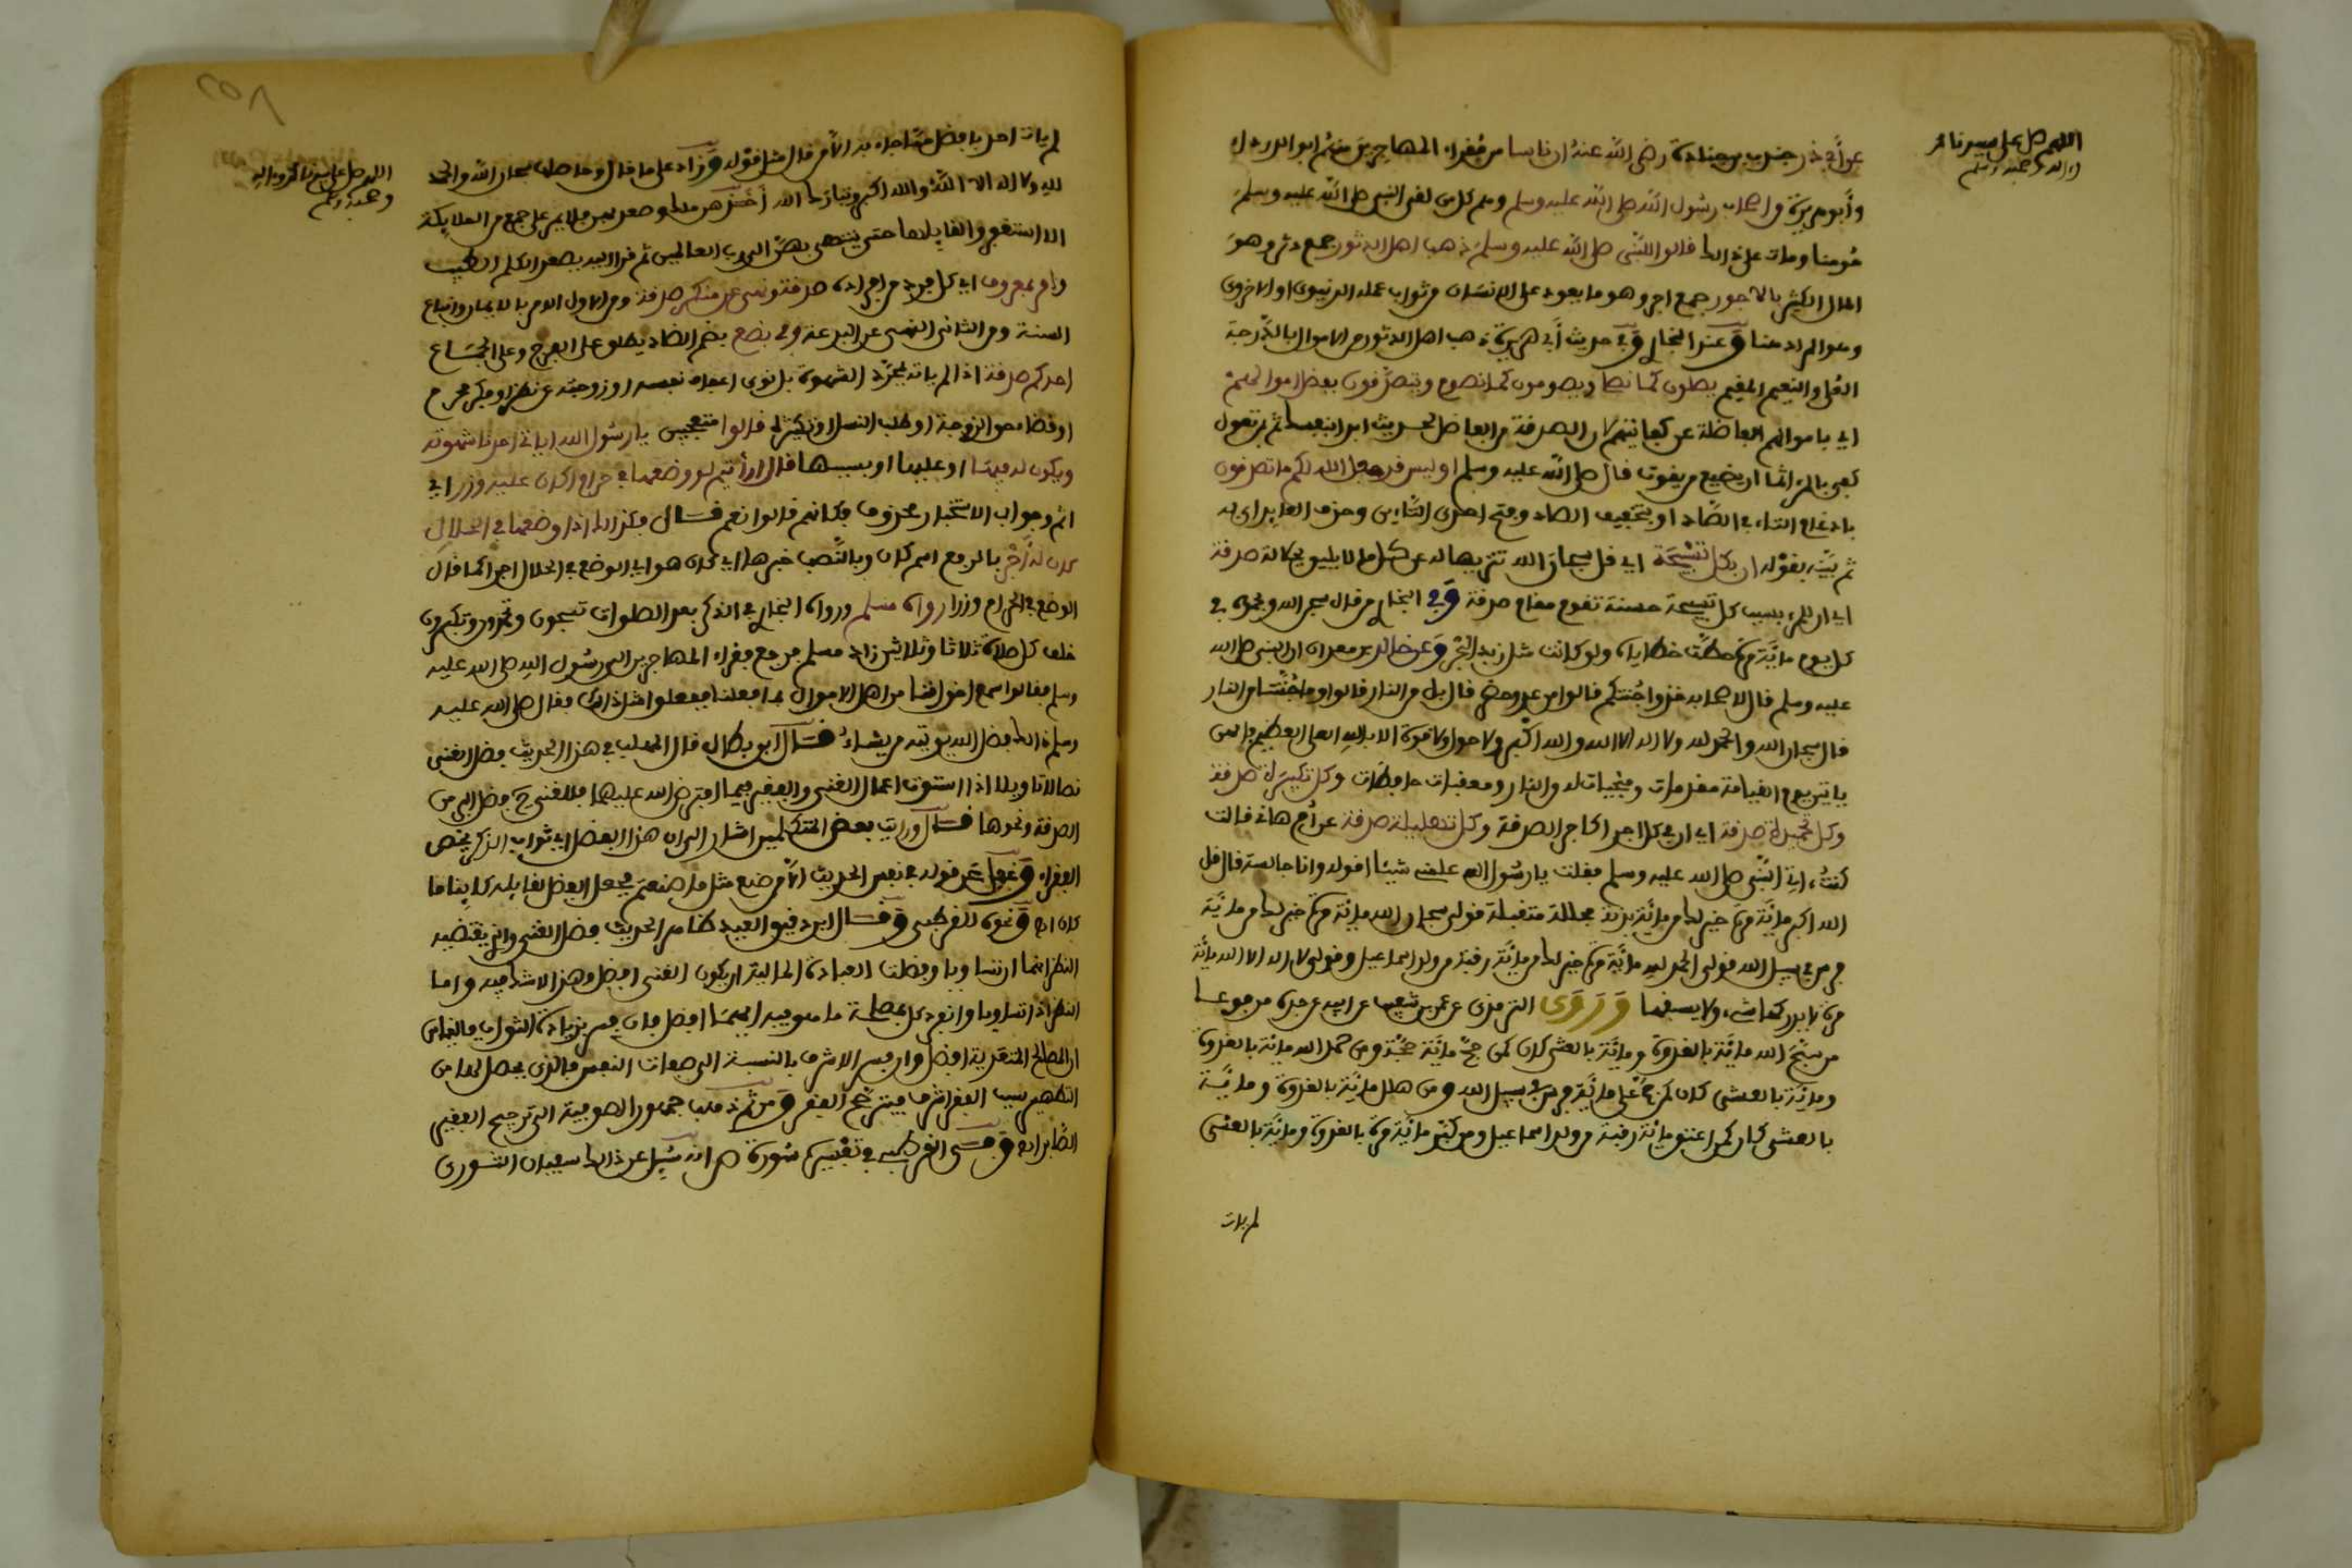 اللهم صل على سيدنا محمد
وآله وصحبه وسلم
عن أبي ذر جندب بن جنادة رضي الله عنه أن ناسا من فقراء المهاجرين منهم أبو الدرداء
وأبو هريرة وأصحاب رسول الله صلى الله عليه وسلم وهم كل من لقي النبي صلى الله عليه وسلم
مومنا ومات على ذلك قالوا للنبي صلى الله عليه وسلم ذهب أهل الدثور جمع دثر وهو
المال الكثير بالأجور جمع أجر وهو ما يعود على الإنسان من ثواب عمله الدنيوي أو الأخروي
وهو المراد هنا وعند البخاري وفي حديث أبي هريرة ذهب أهل الدثور من الأموال بالدرجة
العلى والنعيم المقيم يصلون كما نصلي ويصومون كما نصوم ويتصدقون بفضل أموالهم
أي بأموالهم الفاضلة عن كفايتهم لأن الصدقة من الفاضل لحديث ابدأ بنفسك ثم بمن تعول
كفى بالمرء إثما أن يضيع من يقوت قال صلى الله عليه وسلم أو ليس قد جعل الله لكم ما تصدقون
بإدغام التاء في الصاد أو بتخفيف الصاد وفتح إحدى التاءين وحذف العايد أي به
ثم بينه بقوله إن بكل تسبيحة أي قل سبحان الله تنزيها له عن كل ما لا يليق بجلاله صدقة
أي إن للمرء بسبب كل تسبيحة حسنة تقوم مقام صدقة وفي البخاري من قال سبحان الله وبحمده في
كل يوم مائة مرة حطت خطاياه ولو كانت مثل زبد البحر وعن خالد بن معدان أن النبي صلى الله
عليه وسلم قال لأصحابه خذوا جنتكم قالوا من عدو حضر قال بل من النار قالوا وما جنتنا من النار
قال سبحان الله والحمد لله ولا إله إلا الله والله أكبر ولا حول ولا قوة إلا بالله العلي العظيم فإنهن
ياتين يوم القيامة مقدمات ومنجيات له من النار ومعقبات حافظات وكل تكبيرة صدقة
وكل تحميدة صدقة أي إن في كل أجرا كأجر الصدقة وكل تهليلة صدقة عن أم هانئ قالت
كنت آتي النبي صلى الله عليه وسلم فقلت يا رسول الله علمني شيئا أقوله وأنا جالسة قال قل
الله أكبر مائة مرة خير لك من مائة بدنة مجللة متقبلة قولي سبحان الله مائة مرة خير لك من مائة
فرس في سبيل الله قولي الحمد لله مائة مرة خير لك من مائة رقبة من ولد اسماعيل وقولي لا إله إلا الله مائة
مرة لا يدركها شيء ولا يسبقها وروى الترمذي عن عمرو بن شعيب عن أبيه عن جده مرفوعا
من سبح الله مائة بالغدوة ومائة بالعشي كان كمن حج مائة حجة ومن حمد الله مائة بالغدوة
ومائة بالعشي كان كمن حمل على مائة فرس في سبيل الله ومن هلل مائة بالغدوة ومائة
بالعشي كان كمن أعتق مائة رقبة من ولد اسماعيل ومن كبر مائة مرة بالغدوة ومائة بالعشي
لم يات
اللهم صل على سيدنا محمد وآله
وصحبه وسلم
لم يات أحد بأفضل مما جاء به إلا من قال مثل قوله وزاد على ما قال وحاصله سبحان الله والحمد
لله ولا إله إلا الله والله أكبر وتبارك الله أخذهن ملك وصعد بهن فلا يمر على جمع من الملايكة
إلا استغفروا لقايلها حتى ينتهي بهن إلى رب العالمين ثم قرأ إليه يصعد الكلم الطيب
وأمر بمعروف أي كل فرد من أفراده صدقة ونهي عن منكر صدقة ومن الأول الأمر بالإيمان واتباع
السنة ومن الثاني النهي عن البدعة وفي بضع بضم الضاد يطلق على الفرج وعلى الجماع
أحدكم صدقة إذا لم ياته بمجرد الشهوة بل نوى إعفاف نفسه أو زوجته عن نظر أو فكر محرم
أو قضاء حق الزوجة أو طلب النسل أو تكثيره قالوا متعجبين يا رسول الله أياتي أحدنا شهوته
ويكون له فيها أو عليها أو بسببها قال أرأيتم لو وضعها في حرام أكان عليه وزر أي
إثم وجواب الاستخبار محذوف فكأنهم قالوا نعم قال فكذلك إذا وضعها في الحلال
كان له أجر بالرفع اسم كان وبالنصب خبرها أي كان هو أي الوضع في الحلال أجرا كما كان
الوضع في الحرام وزرا رواه مسلم ورواه البخاري في الذكر بعد الصلوات تسبحون وتحمدون وتكبرون
خلف كل صلاة ثلاثا وثلاثين زاد مسلم فرجع فقراء المهاجرين إلى رسول الله صلى الله عليه
وسلم فقالوا سمع إخواننا من أهل الأموال بما فعلنا ففعلوا مثل ذلك فقال صلى الله عليه
وسلم ذلك فضل الله يوتيه من يشاء قال ابو بطال قال المهلب في هذا الحديث فضل الغني
نصا لا تاويلا إذا استوت أعمال الغني والفقير فيما افترض الله عليهما فللغني ح فضل البر من
الصدقة ونحوها قال ورأيت بعض المتكلمين أشار إلى أن هذا الفضل أي ثواب الذكر يخص
الفقراء وغفل عن قوله في نفس الحديث إلا من صنع مثل ما صنعتم فجعل الفضل لقايله كاينا ما
كان اه ونحوه للقرطبي وقال ابن دقيق العيد ظاهر الحديث فضل الغني والذي يقتضيه
النظر أنهما إن تساويا وفضلت العبادة المالية أن يكون الغني أفضل وهذا لا شك فيه وإما
النظر إذا تساويا وانفرد كل بمصلحة ما هو فيه أيهما أفضل فإن فسر بزيادة الثواب فالقياس
أن المصالح المتعدية أفضل وإن فسر الأشرف بالنسبة إلى صفات النفس فالذي يحصل لها من
التطهير بسبب الفقر أشرف فيترجح الفقر ومن ثم ذهب جمهور الصوفية إلى ترجيح الفقير
الصابر اه وفي القرطبي في تفسير سورة ص أنه سئل عن ذلك سفيان الثوري